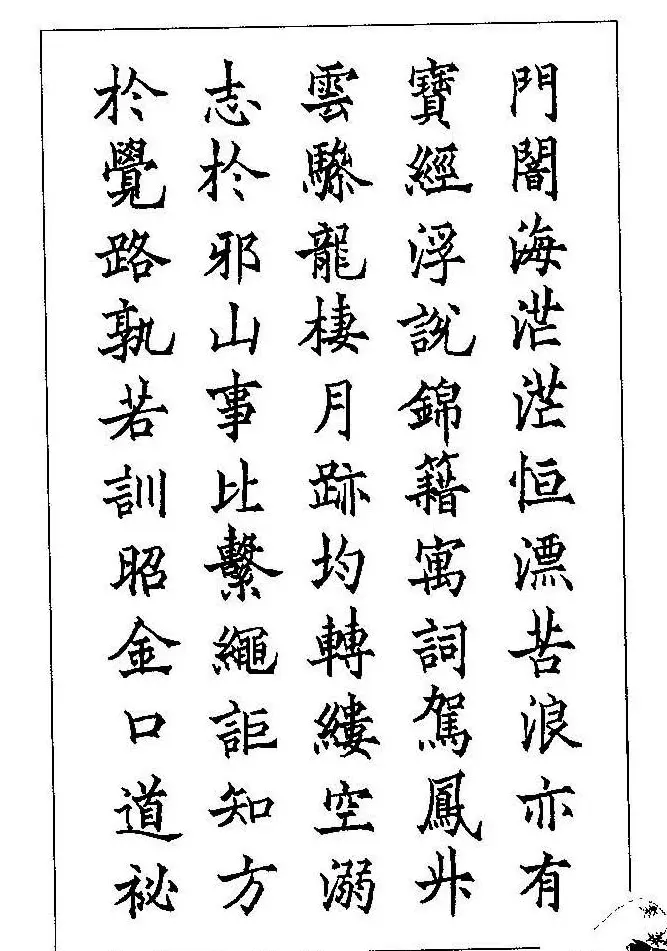 門闇海茫茫恒漂苦浪亦有
寶經浮說錦籍寓詞駕鳳升
雲驂龍棲月跡均轉縷空溺
志於邪山事比繫繩詎知方
於覺路孰若訓昭金口道祕